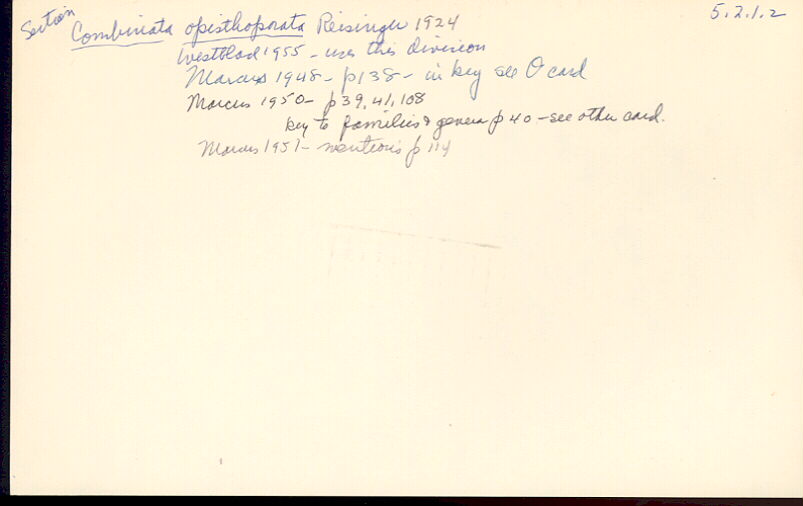 Section Combinata opisthoporata Reisinger 1924 5.2.1.2
Westblad 1955 - uses this division
Marcus 1948 - p138 - in key see O card
Marcus 1950 - p39, 41, 108
key to families & genera p 40 - see other card.
Marcus 1951 - mentions p 114